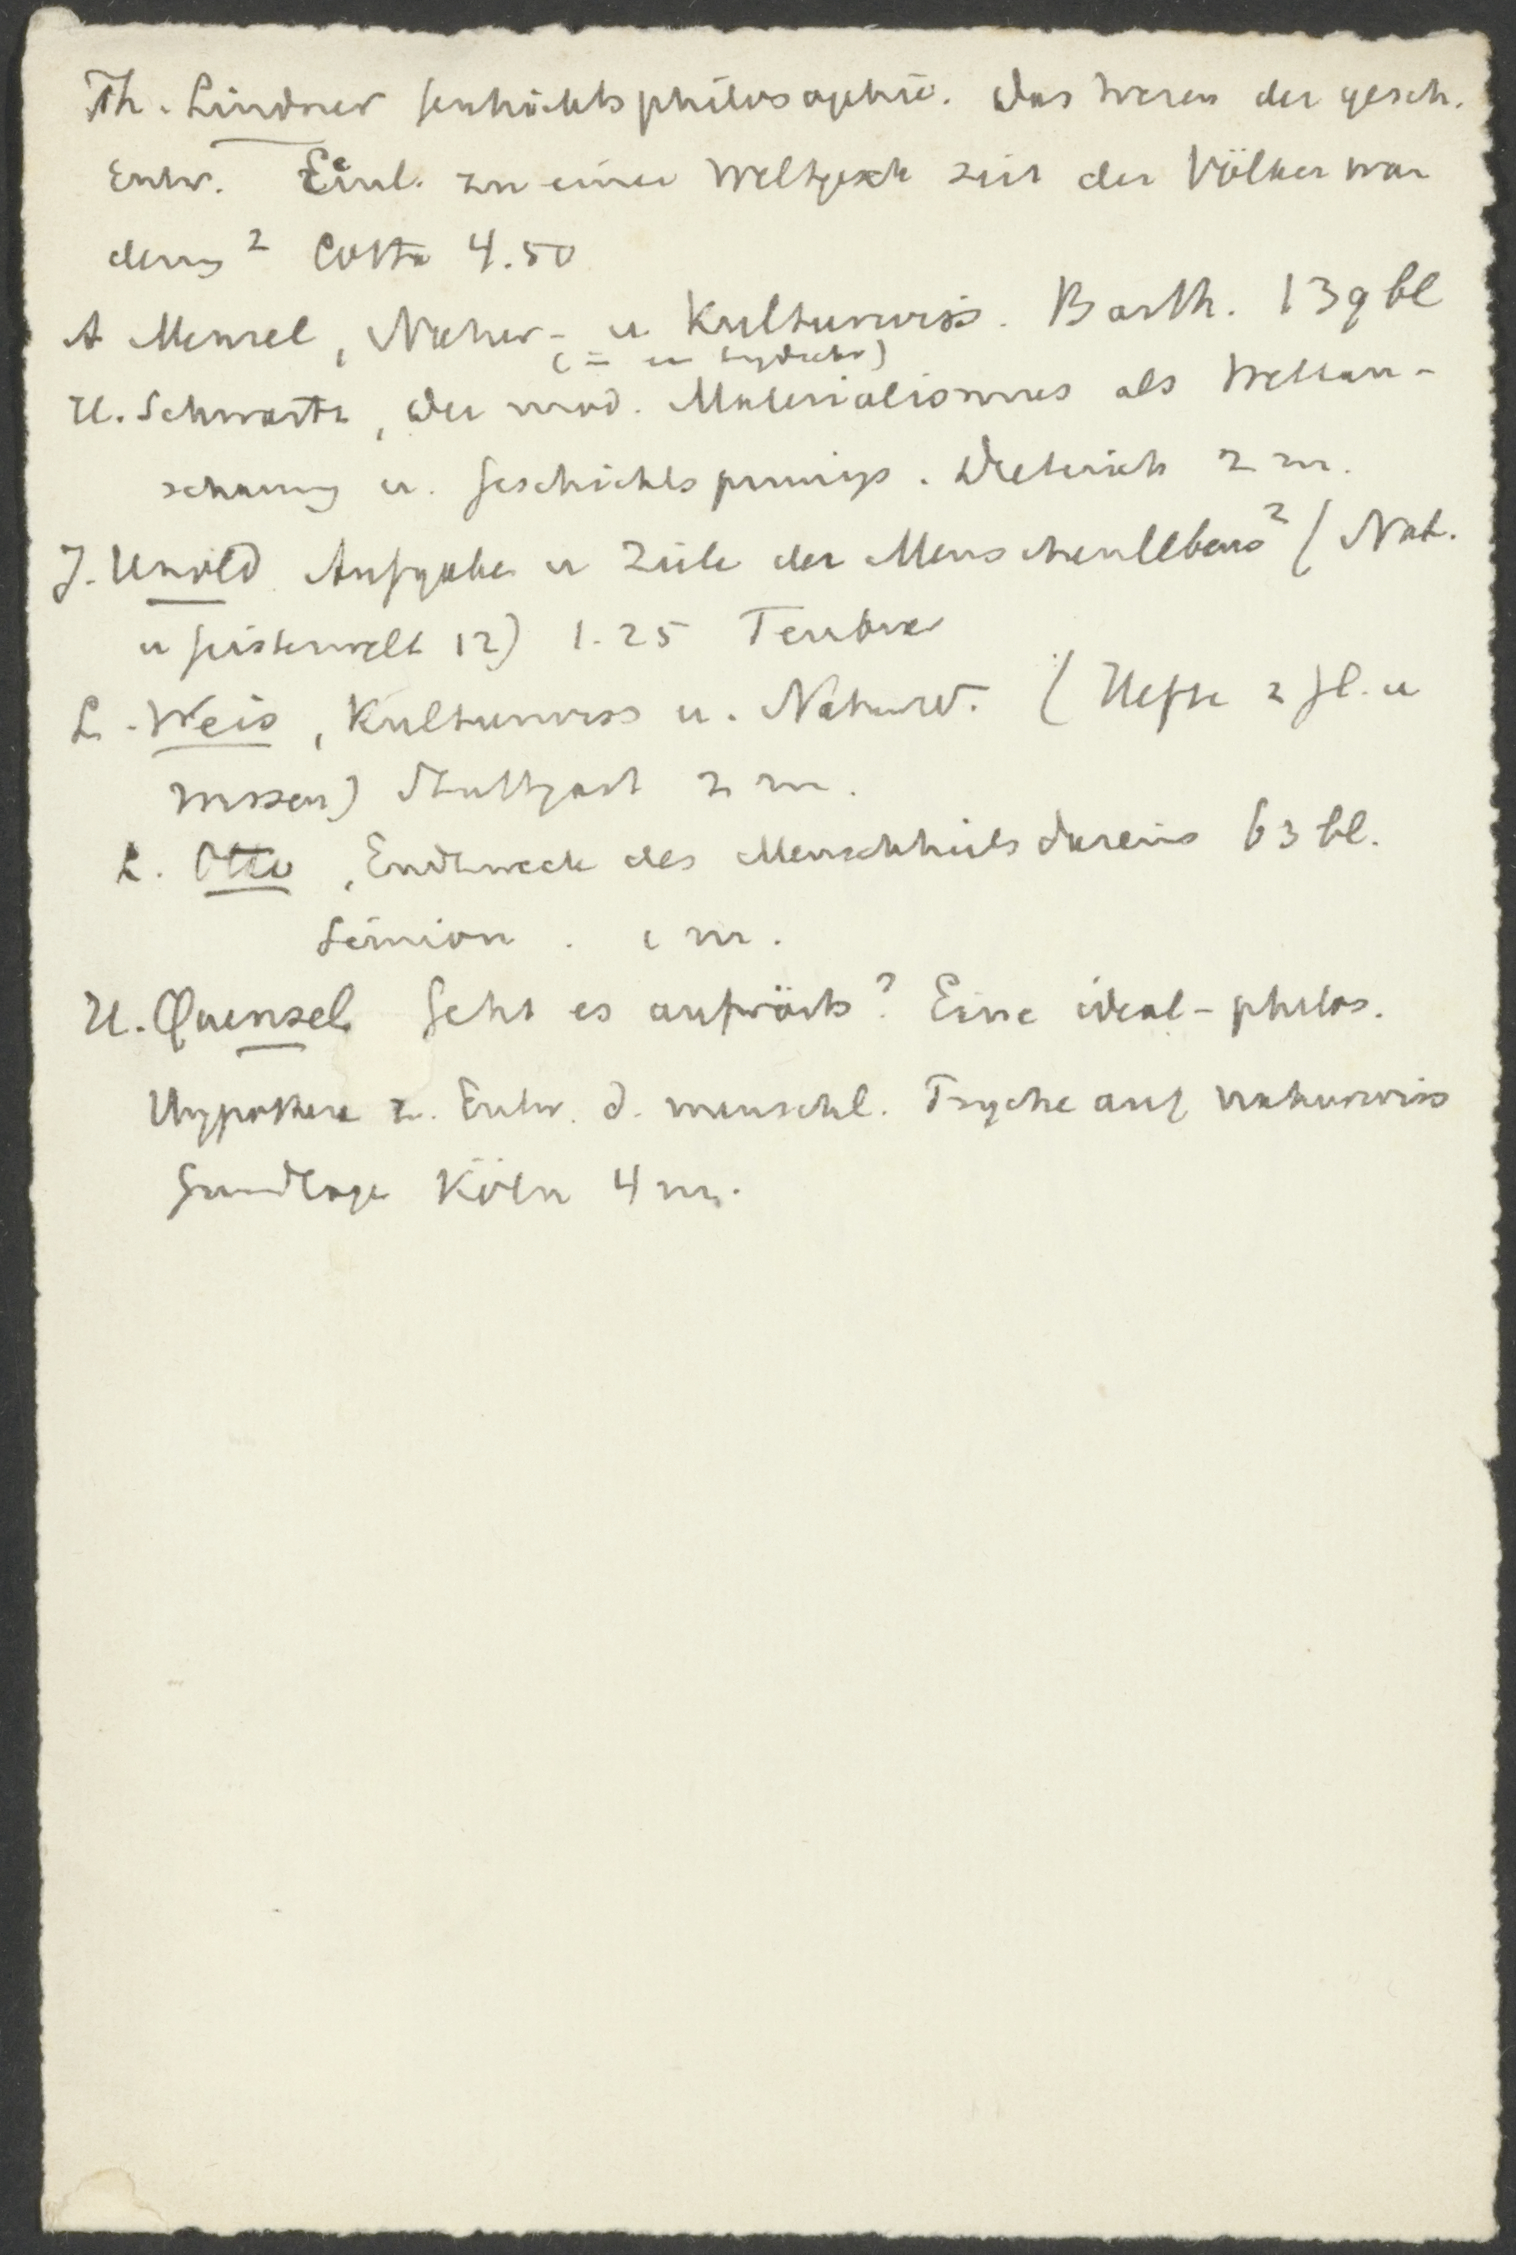 Th. Lindner Geschichtsphilosophie. Das Wesen der gesch.
Entw. Einl. zu einer Weltgesch seit der Völkerwan
derung ² Cotta 4.50
A Menzel, Natur- u Kulturwiss. Barth. 139 bl
(= u
H. Schwartz, Der mod. Materialismus als Weltan-
schauung u. Geschichtsprinzip. Dieterich 2 m.
J. Unold Aufgaben u Ziele des Menschenlebens ² (Nat.
u Geisteswelt 12) 1.25 Teubner
L. Weis, Kulturwiss u. Naturw. (Hefte z Gl. u
Wissen) Stuttgart 2 m.
L. Otto, Endzweck des Menschheitsdaseins 63 bl.
Simion. 1 m.
H. Quensel Geht es aufwärts? Eine ideal-philos.
Hypothese z. Entw. d. menschl. Psyche auf naturwiss
Grundlage Köln 4 m.